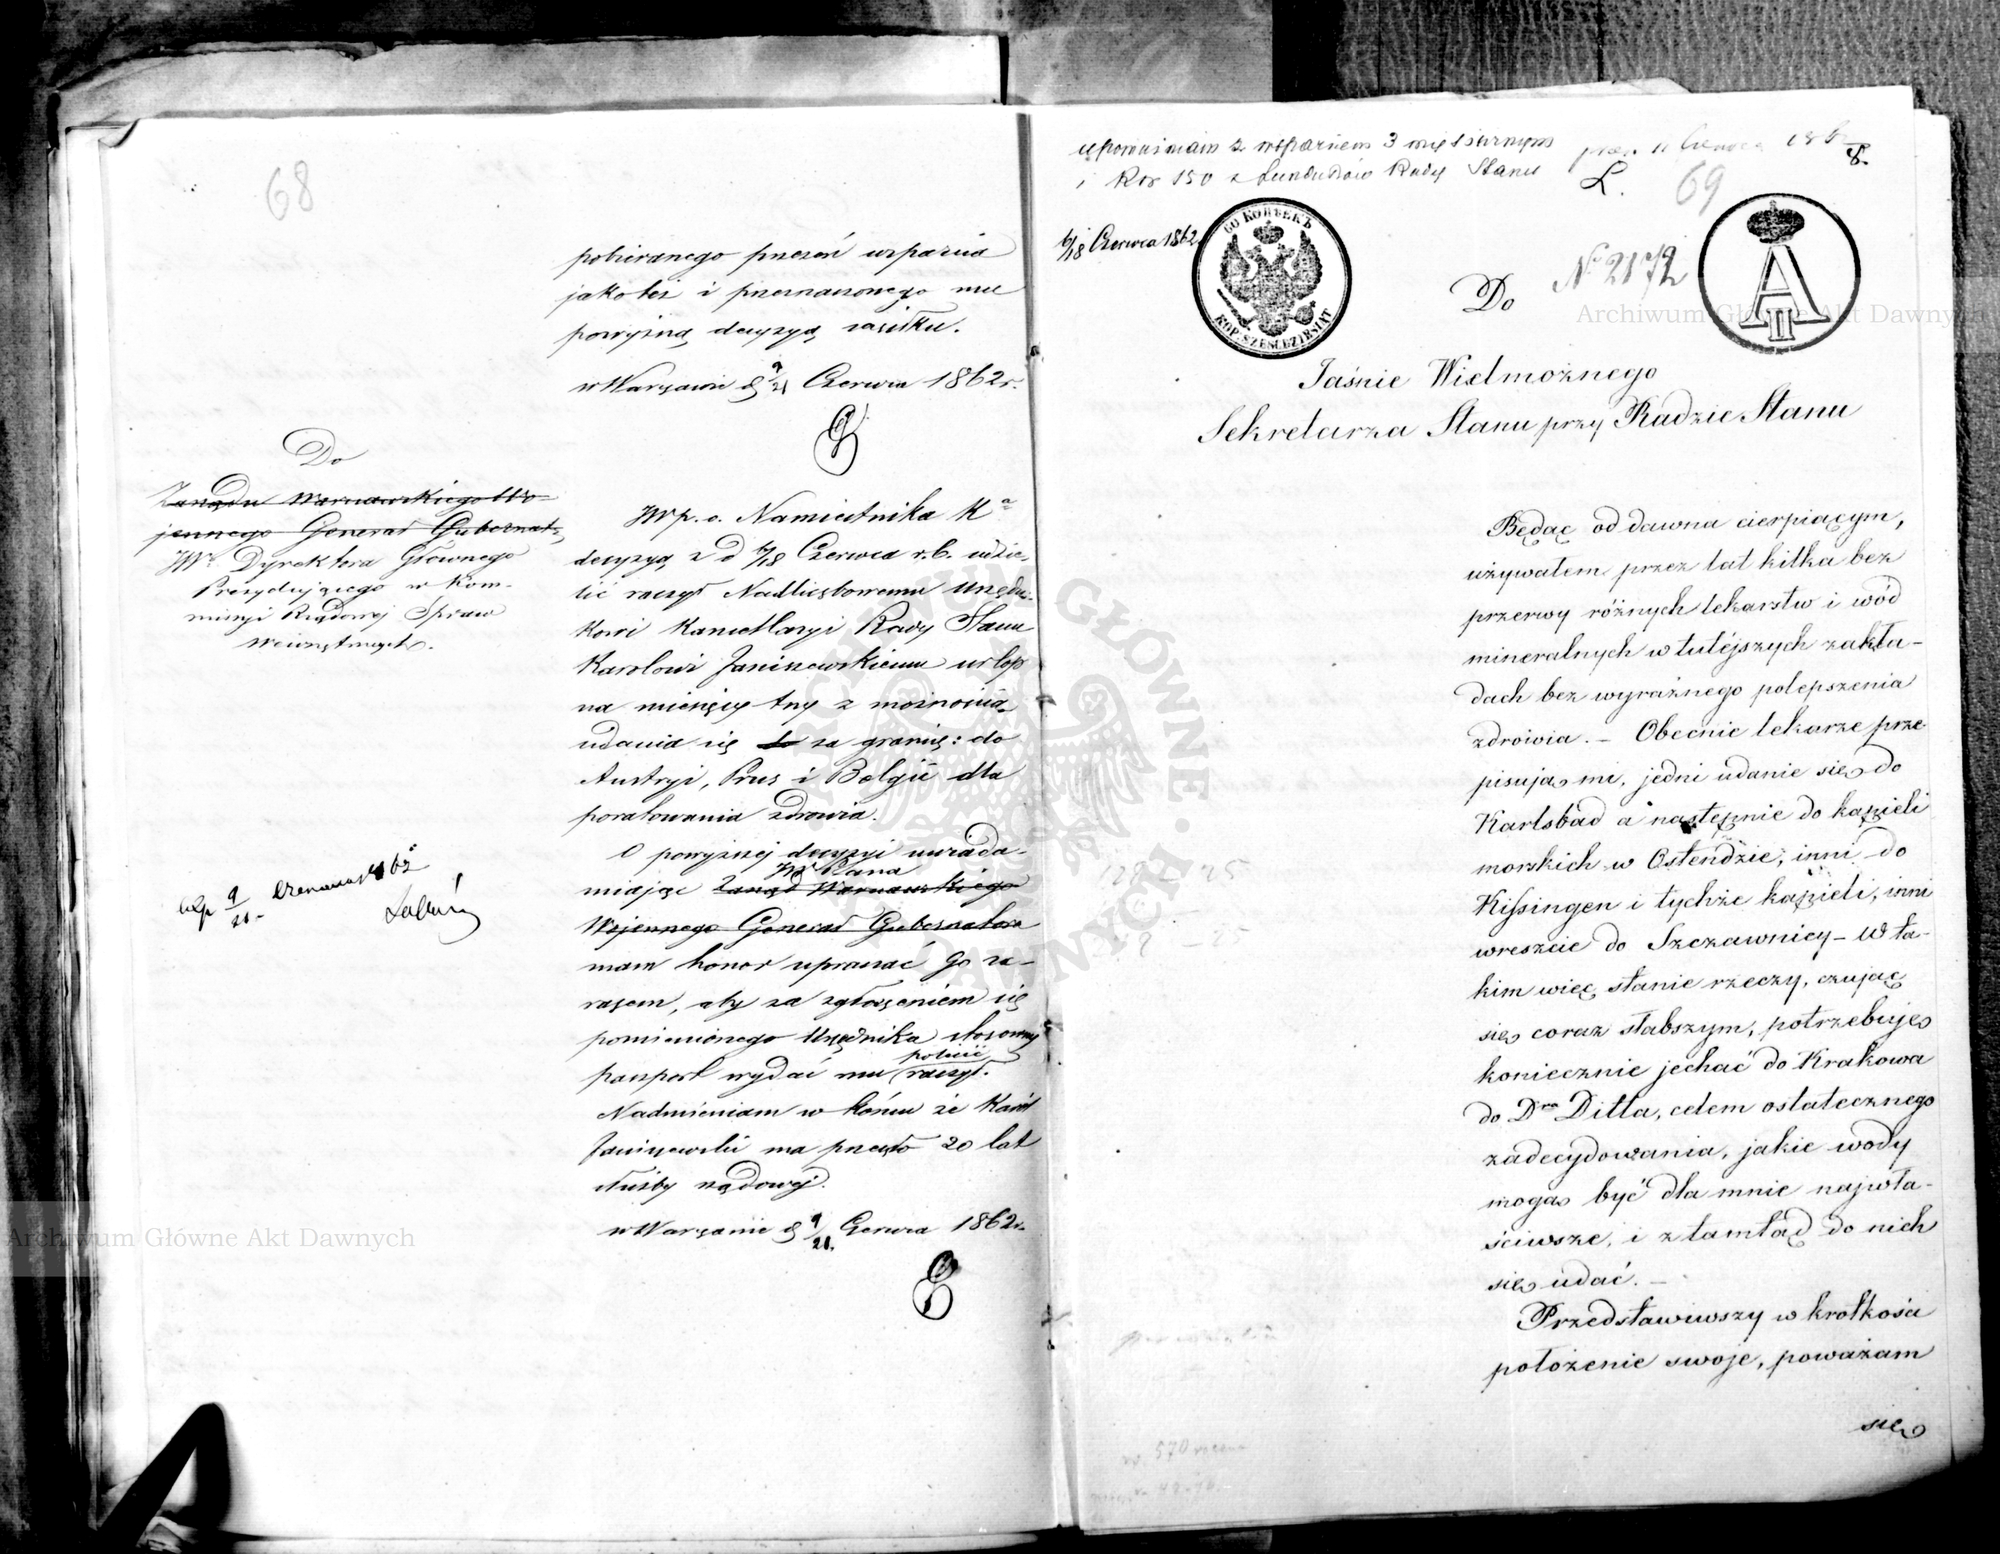 68
pobieranego przezeń wsparcia
jakoteż i przeznaczonego mu
powyższą decyzyą zasiłku.
w Warszawie d 9/21 Czerwca 1862 r.
Do
Zarządu Warszawskiego Wo-
jennego Generał Gubernat
JWo Dyrektora Głównego
Prezydującego w Kom-
missyi Rządowej Spraw
Wewnętrznych.
JW p. o. Namiestnika Ka
decyzyą z d 6/18 Czerwca r.b. udzie-
lić raczył Nadliczbowemu Urzęd-
kowi Kancellaryi Rady Stanu
Karolowi Janiszewskiemu urlop
na miesięcy trzy z możnością
udania się do za granicę: do
Austryi, Prus i Belgii dla
poratowania zdrowia.
O powyższej decyzyi uwiada-
JW Pana
miając Zarząd Warszawskiego
Wojennego Generał Gubernatora
mam honor upraszać Go za-
razem, aby za zgłoszeniem się
pomienionego Urzędnika stosowny
polecić
paszport wydać mu raczył.
Nadmieniam w końcu że Karol
Janiszewski ma przeszło 20 lat
służby rządowej.
w Warszawie d 9/21. Czerwca 1862 r.
9/21 Czerwca 1862
upoważniam z wsparciem 3 miesięcznym
i Rsr 150 z funduszów Rady Stanu
6/18 Czerwca 1862
69
60 КОПѢЕКЪ
KOP. SZEŚĆDZIESIĄT
A II
No 2172
Do
Jaśnie Wielmożnego
Sekretarza Stanu przy Radzie Stanu
Będąc od dawna cierpiącym,
używałem przez lat kilka bez
przerwy różnych lekarstw i wód
mineralnych w tutéjszych zakła-
dach bez wyraźnego polepszenia
zdrowia. – Obecnie lekarze prze-
pisują mi, jedni udanie się do
Karlsbad a następnie do kąpieli
morskich w Ostendzie; inni do
Kissingen i tychże kąpieli; inni
wreszcie do Szczawnicy – W ta-
kim więc stanie rzeczy, czując
się coraz słabszym, potrzebuję
koniecznie jechać do Krakowa
do Dra Ditla, celem ostatecznego
zadecydowania, jakie wody
mogą być dla mnie najwła-
ściwsze, i z tamtąd do nich
się udać. –
Przedstawiwszy w krótkości
położenie swoje, poważam
się
Archiwum Główne Akt Dawnych
Archiwum Główne Akt Dawnych
ARCHIWUM GŁÓWNE AKT DAWNYCH